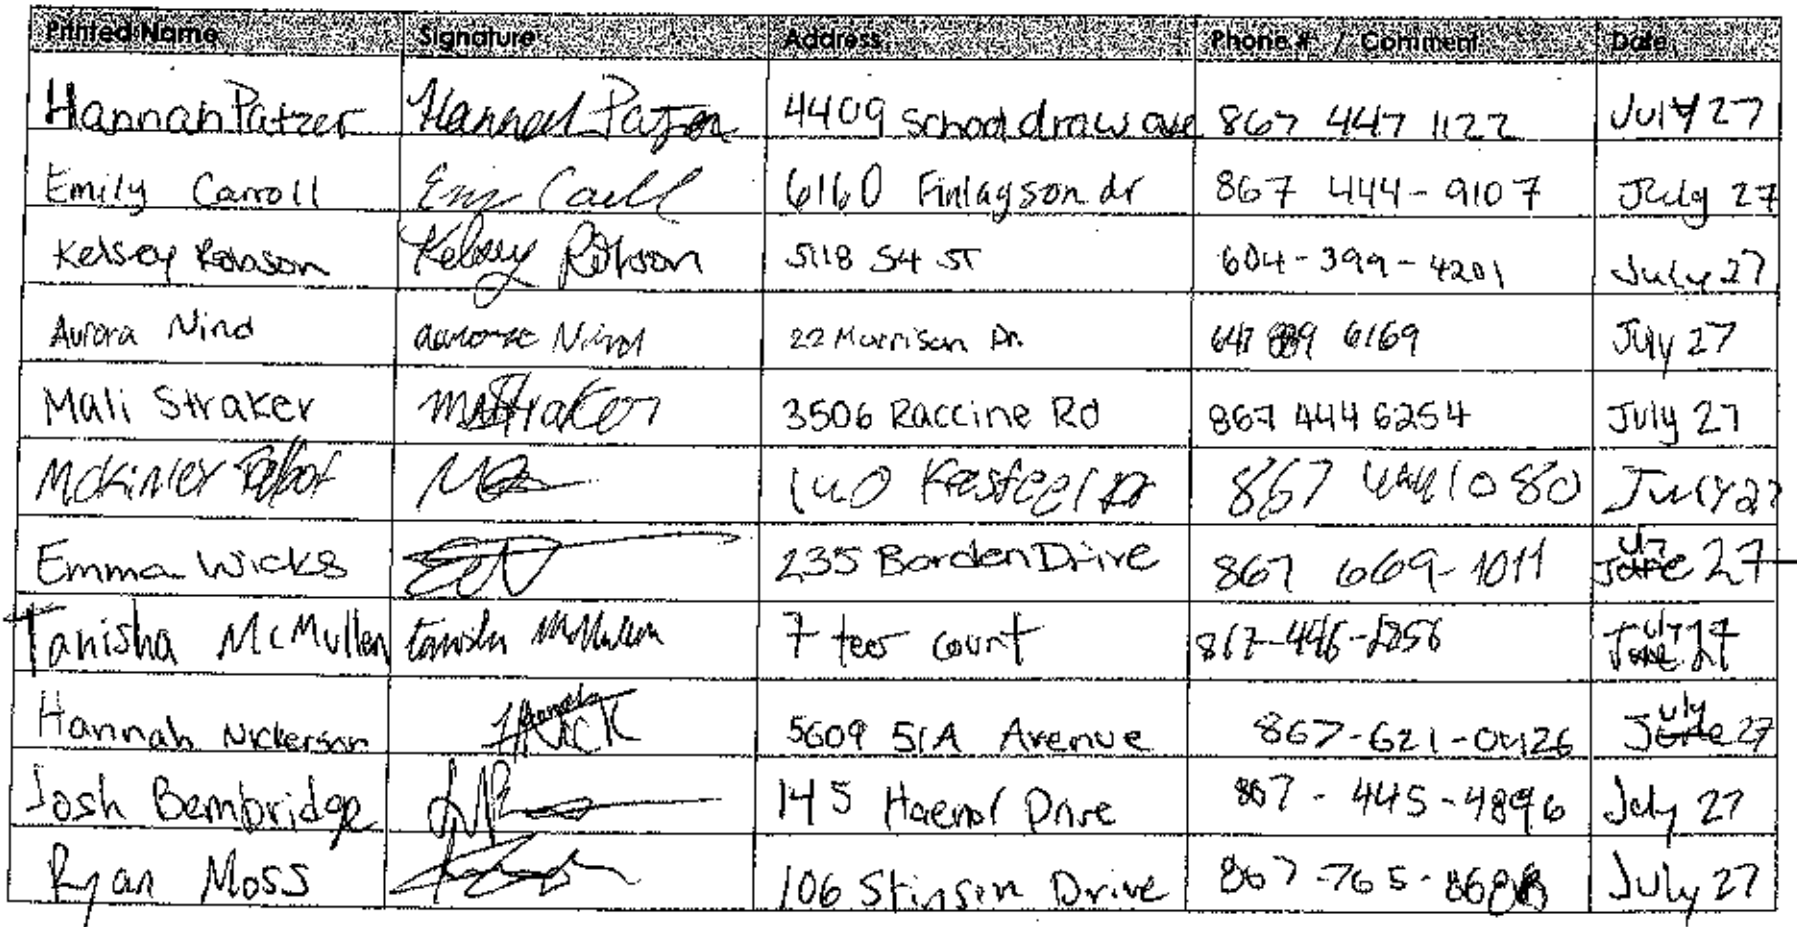 Printed Name Signature Address Phone # / Comment Date
Hannah Patzer Hannah Patzer 4409 school draw ave 867 447 1122 July 27
Emily Carroll 6160 Finlayson dr 867 444-9107 July 27
Kelsey Robson Kelsey Robson 5118 54 ST 604-399-4201 July 27
Aurora Nind aurora Nind 22 Morrison Dr. 647 889 6169 July 27
Mali Straker MStraker 3506 Raccine Rd 867 444 6254 July 27
Mckinley Talbot 867 444 1080 July 27
Emma Wicks 235 Borden Drive 867 669-1011 July 27
Tanisha McMullen Tanisha McMullen 7 court 867-446- July 27
Hannah Nickerson 5609 51A Avenue 867-621-0426 July 27
Josh Bembridge 145 Drive 867-445-4896 July 27
Ryan Moss 106 Stinson Drive 867-765- July 27